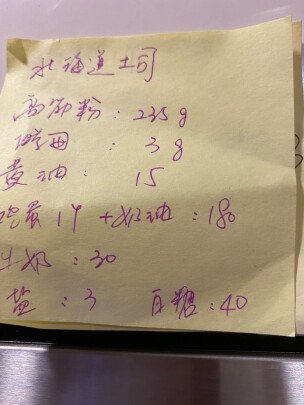 北海道土司
高筋粉：235g
酵母：3g
黄油：15
鸡蛋1个+奶油：180
牛奶：30
盐：3 白糖：40